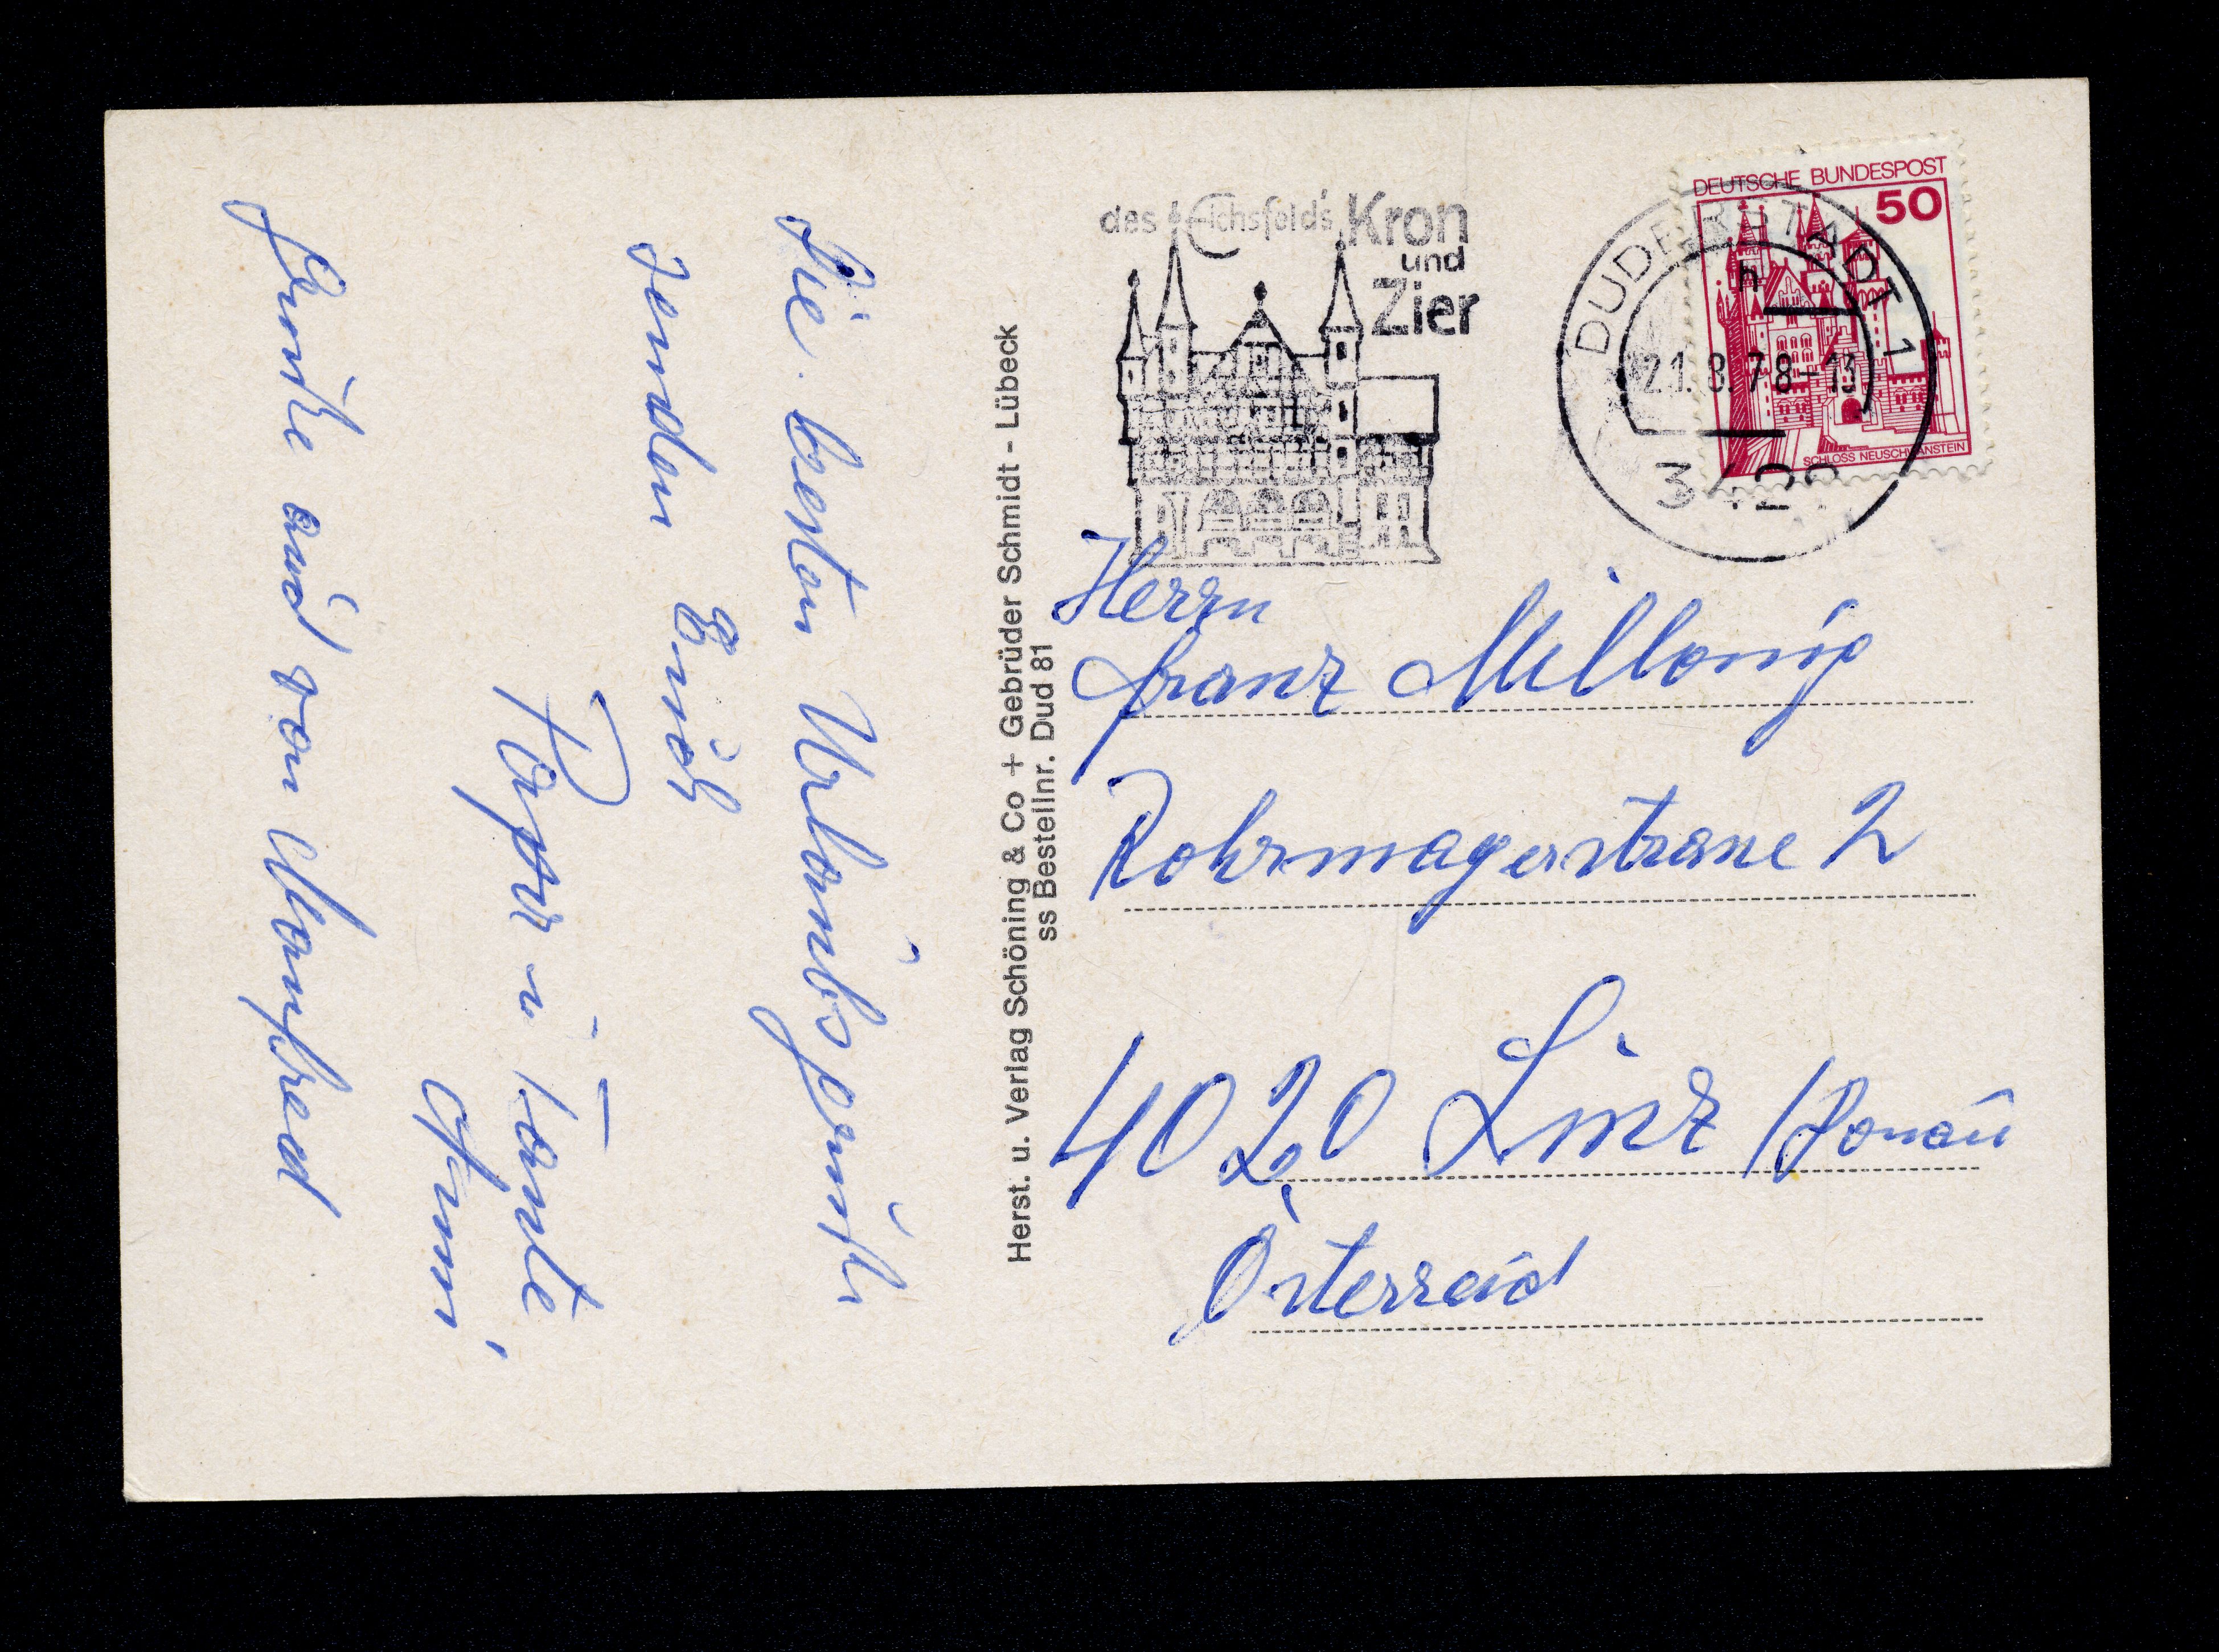 Die besten Urlaubsgrüße
senden Euch
Papa u. Tante
Anni,
Grüße auch von Manfred
Herst. u. Verlag Schöning & Co + Gebrüder Schmidt - Lübeck
ss Bestellnr. Dud 81
des Eichsfelds Kron
und
Zier
DEUTSCHE BUNDESPOST
50
SCHLOSS NEUSCHWANSTEIN
DUDERSTADT 1
h
21.8.78-13
Herrn
Franz Millonig
Rohrmayerstrasse 2
4020 Linz / Donau
Österreich